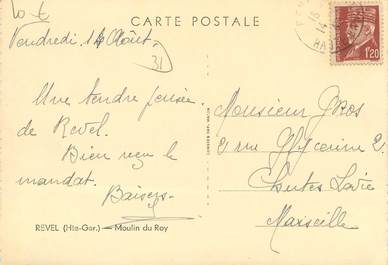 CARTE POSTALE
Vendredi, 14 Août
31
Une tendre pensée
de Revel.
Bien reçu le
mandat.
Baisers
REVEL (Hte-Gar.) — Moulin du Roy
1f20
Monsieur GROS
2 rue Glycine 2
Chutes Lavie
Marseille